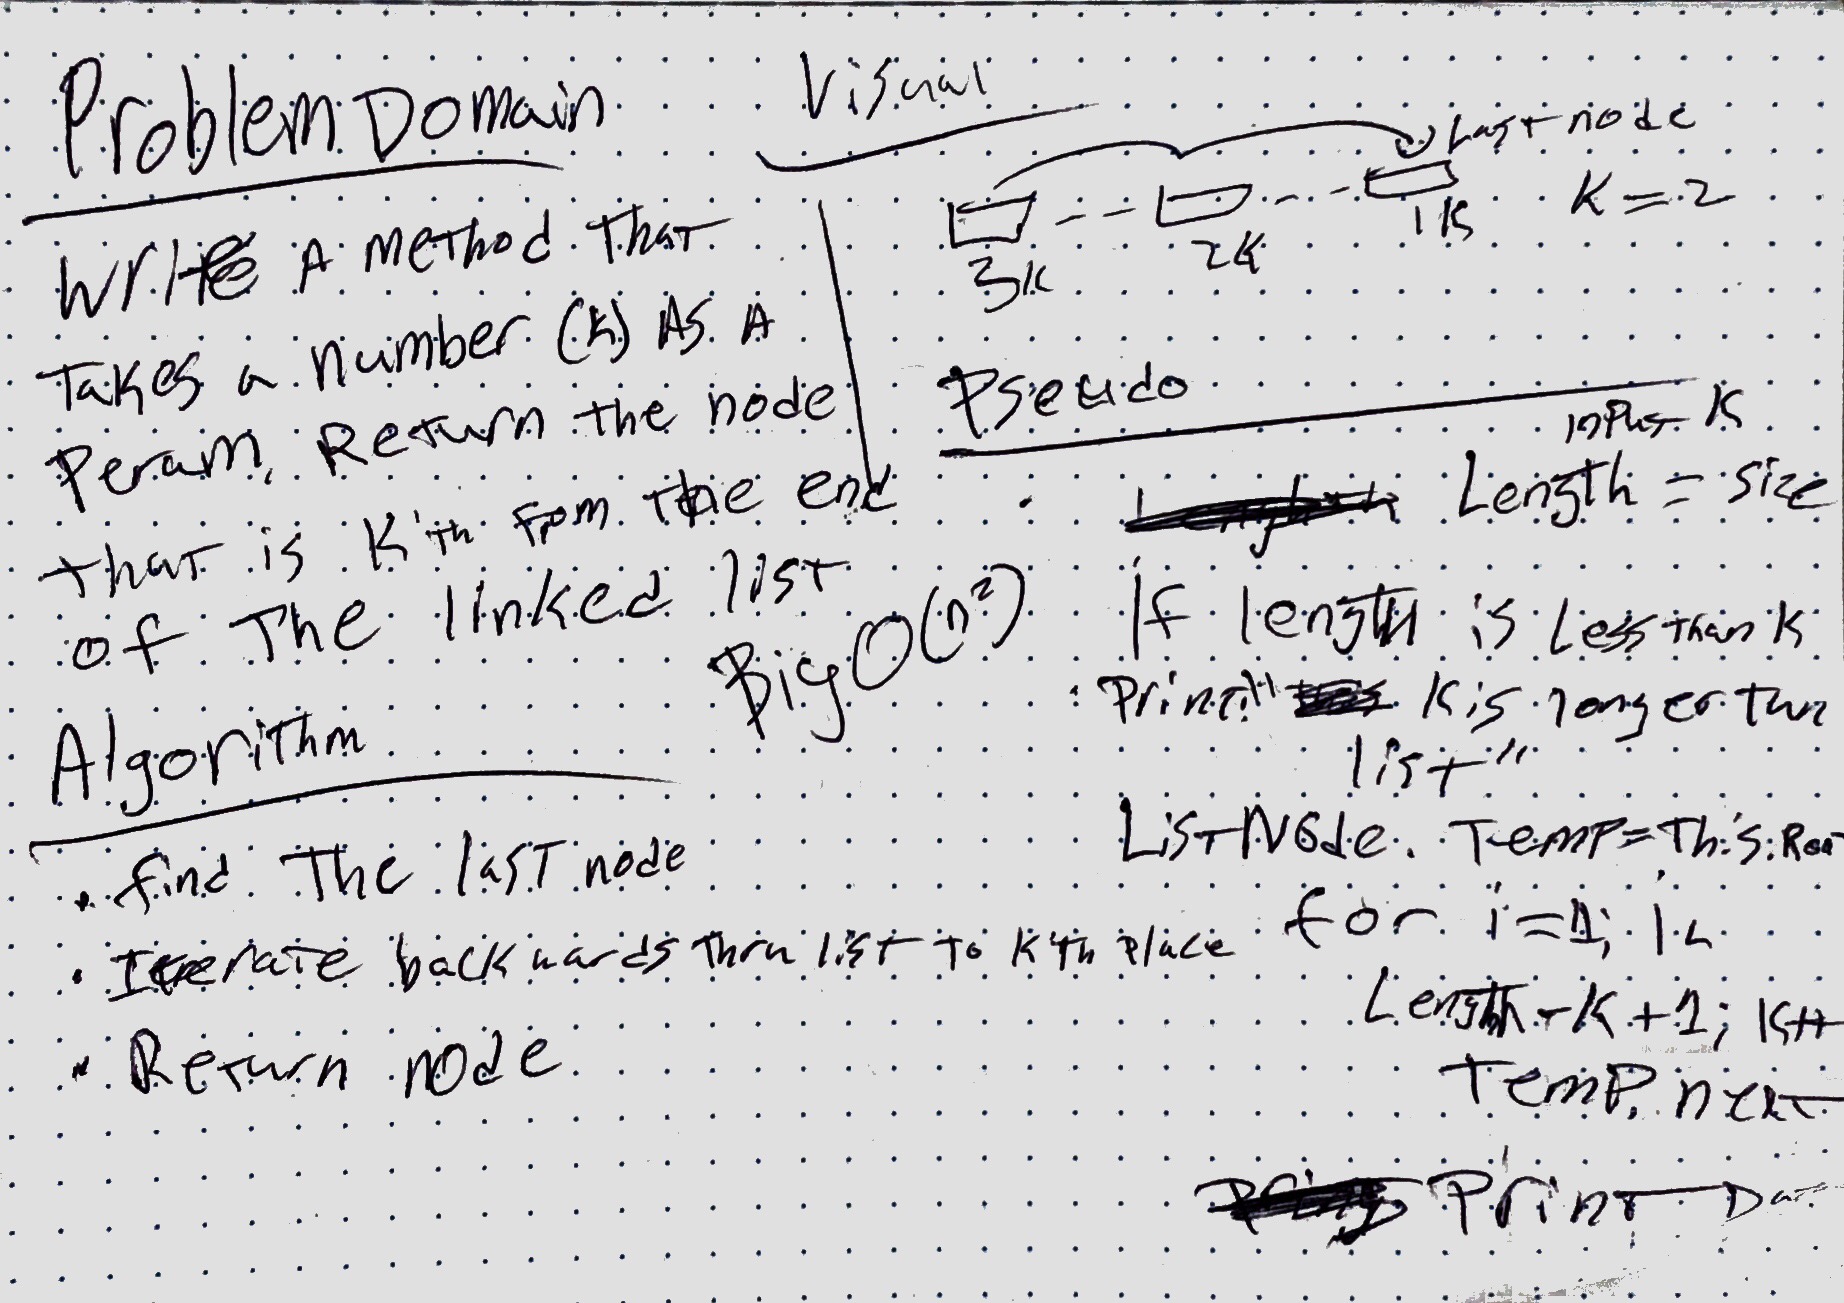 Problem Domain
Write A method That
Takes a number (k) As A
Peram, Return the node
that is K'th from the end
of The linked list
Big O(n²)
Algorithm
• find The last node
• Iterate backwards thru list to K'th place
• Return node
Visual
Last node
K = 2
3K
2K
1K
Pseudo
input K
Length = size
If length is Less than K
Print "K is longer
list"
ListNode. Temp = This.Roo
for i=1; i<
Length - K + 1; K++
Temp. next
Print Da